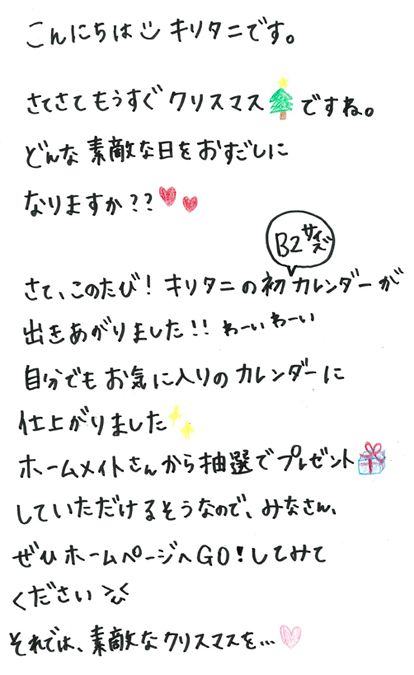 こんにちは キリタニです。
さてさてもうすぐクリスマスですね。
どんな素敵な日をおすごしに
なりますか??
B2サイズ
さて、このたび! キリタニの初カレンダーが
出きあがりました!! わーいわーい
自分でもお気に入りのカレンダーに
仕上がりました
ホームメイトさんから抽選でプレゼント
していただけるそうなので、みなさん、
ぜひホームページへGO!してみて
ください
それでは、素敵なクリスマスを...